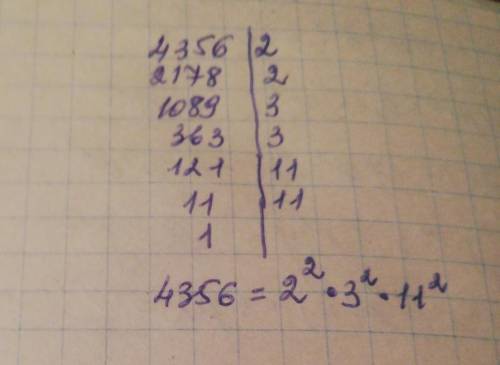 4356 | 2
2178 | 2
1089 | 3
363 | 3
121 | 11
11 | 11
1 |
4356 = 2² · 3² · 11²